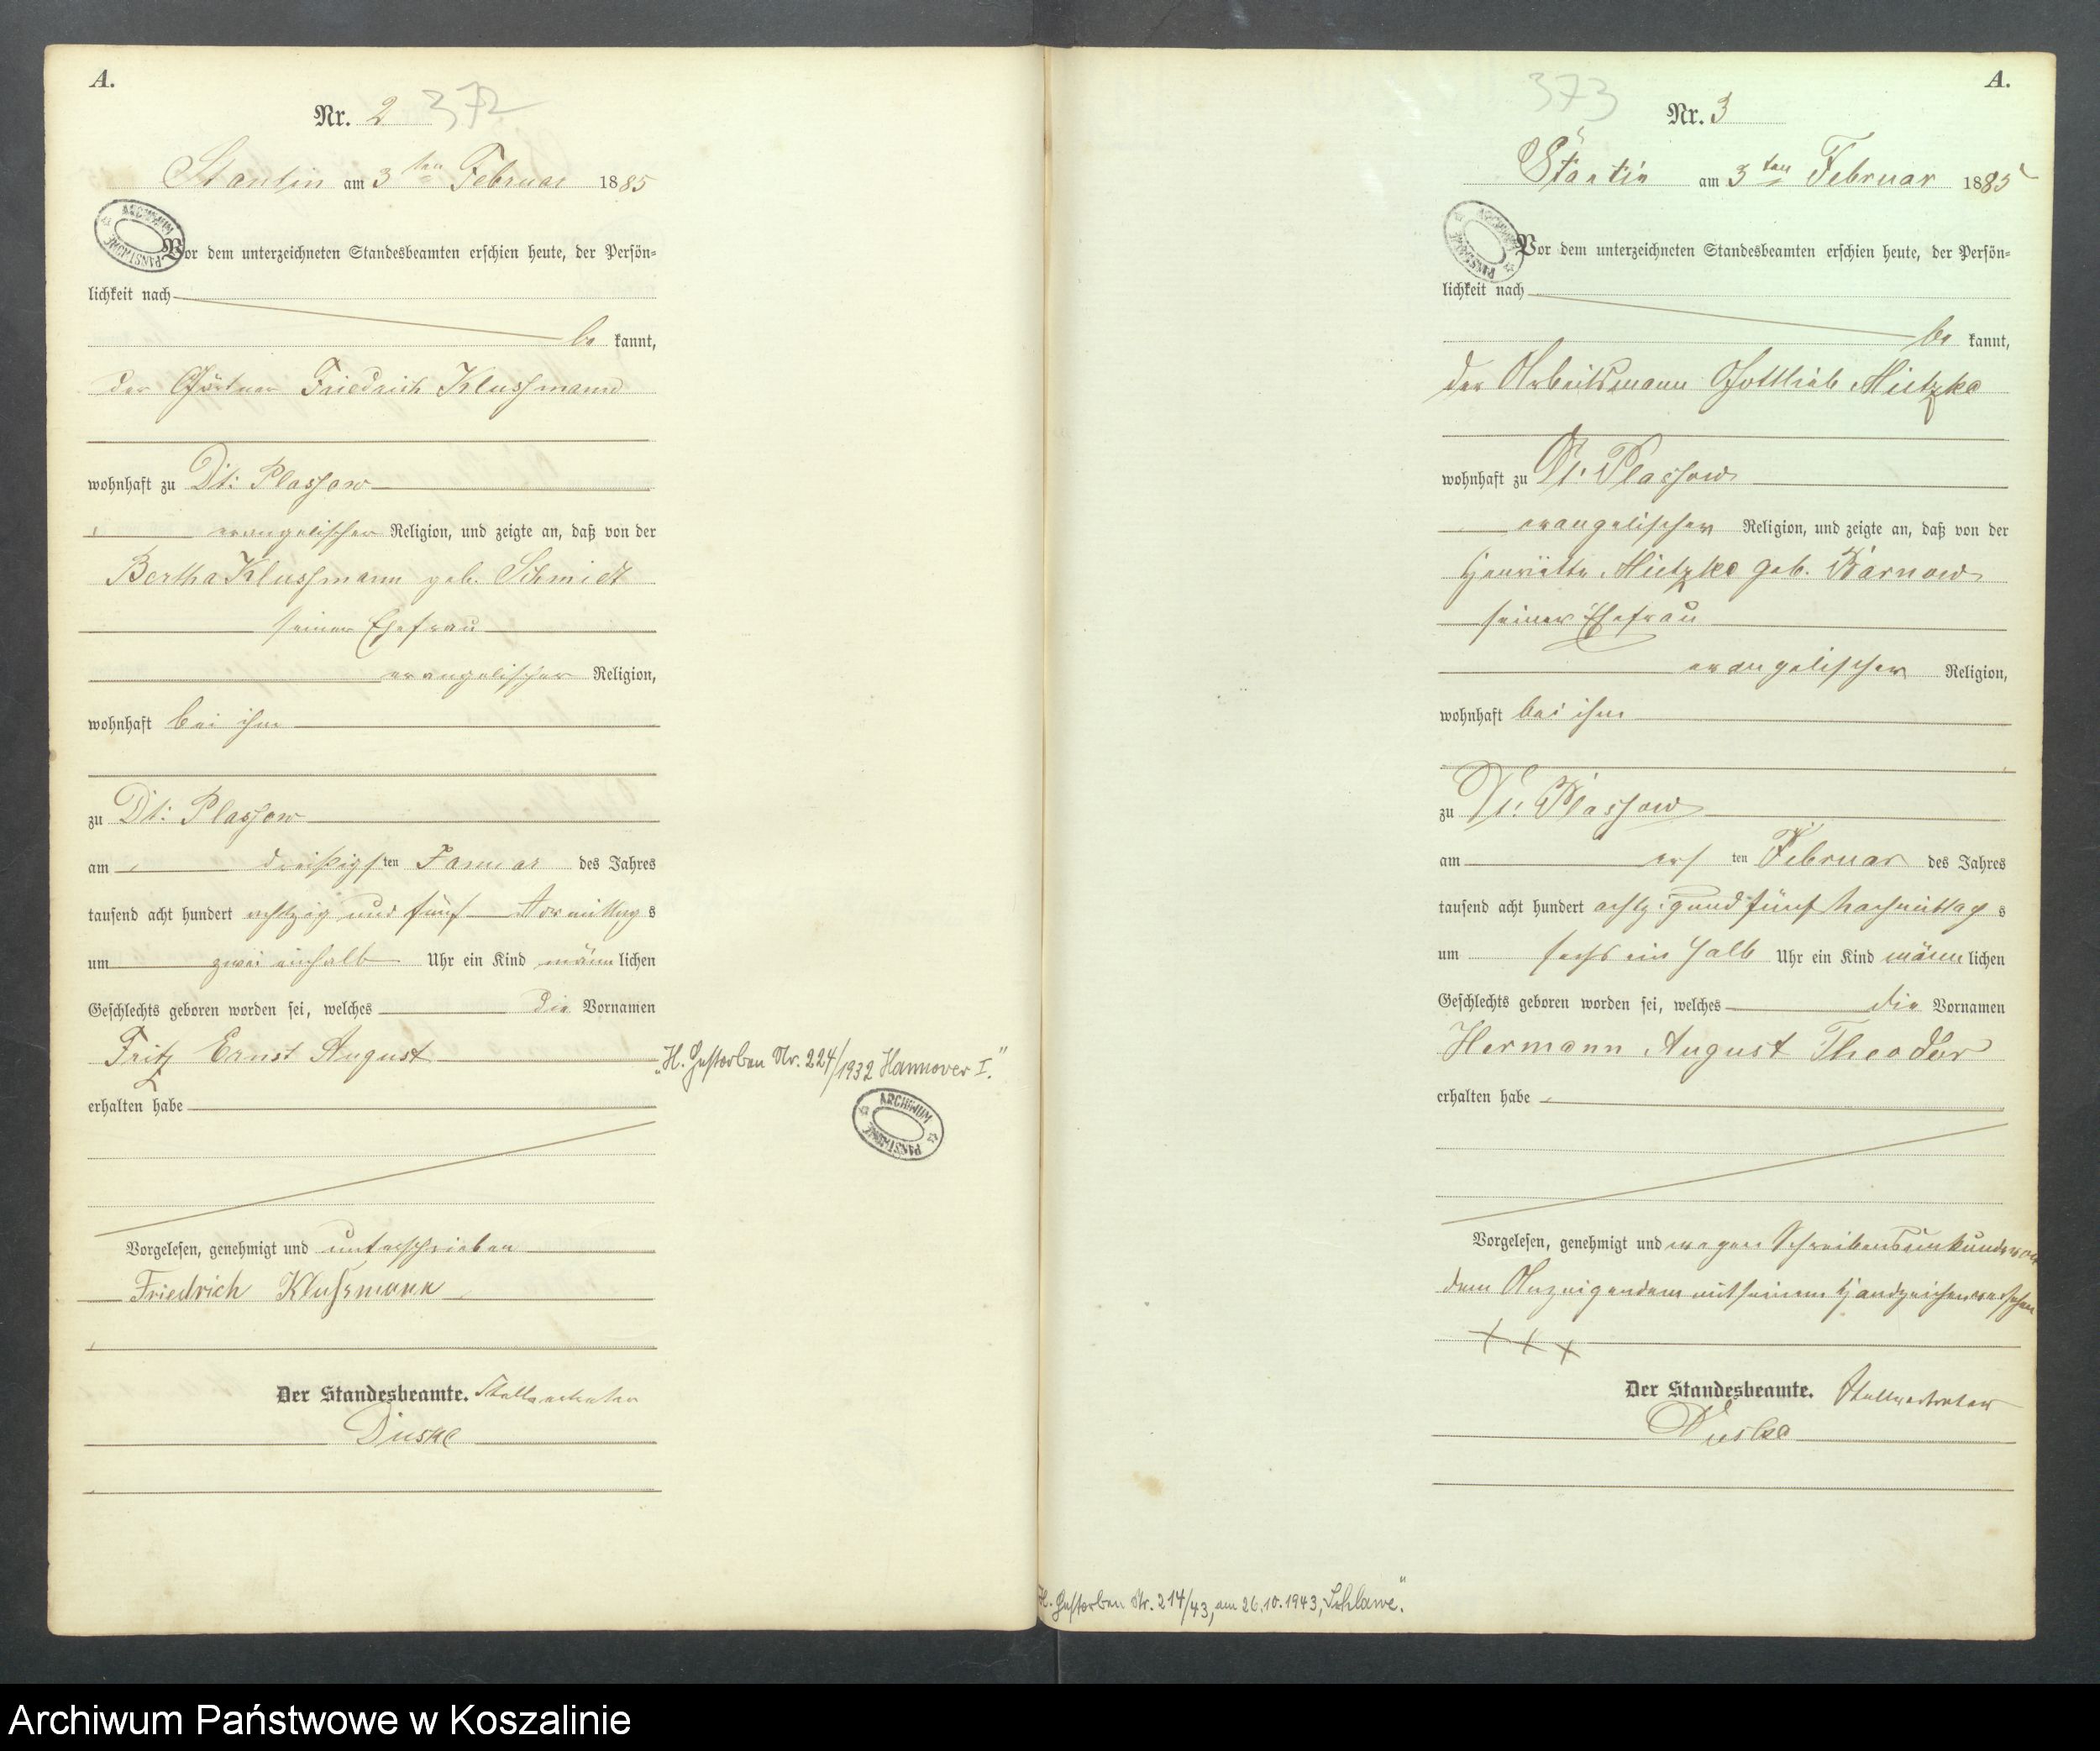 A.
Nr. 2 372
Stantin am 3ten Februar 1885
Vor dem unterzeichneten Standesbeamten erschien heute, der Persön-
lichkeit nach
be kannt,
der Gärtner Friedrich Klussmann
wohnhaft zu Dt: Plassow
evangelischer Religion, und zeigte an, daß von der
Bertha Klussmann geb. Schmidt
seiner Ehefrau
evangelischer Religion,
wohnhaft bei ihm
zu Dt: Plassow
am dreißigsten Januar des Jahres
tausend acht hundert achtzig und fünf Vormittags
um zwei einhalb Uhr ein Kind männlichen
Geschlechts geboren worden sei, welches die Vornamen
Fritz Ernst August
erhalten habe
Vorgelesen, genehmigt und unterschrieben
Friedrich Klußmann
Der Standesbeamte. Stellvertreter
Duske
"H. Gestorben Nr. 224/1932 Hannover I."
ARCHIWUM PAŃSTWOWE
A.
373 Nr. 3
Stantin am 3ten Februar 1885
Vor dem unterzeichneten Standesbeamten erschien heute, der Persön-
lichkeit nach
be kannt,
der Arbeitsmann Gottlieb Mietzke
wohnhaft zu Dt. Plassow
evangelischer Religion, und zeigte an, daß von der
Henriette Mietzke geb. Barnow
seiner Ehefrau
evangelischer Religion,
wohnhaft bei ihm
zu Dt. Plassow
am ersten Februar des Jahres
tausend acht hundert achtzig und fünf Nachmittags
um sechs ein halb Uhr ein Kind männlichen
Geschlechts geboren worden sei, welches die Vornamen
Hermann August Theodor
erhalten habe
Vorgelesen, genehmigt und wegen Schreibensunkunde von
dem Anzeigendem mit seinem Handzeichen versehen
+ + +
Der Standesbeamte. Stellvertreter
Duske
H. Gestorben Nr. 214/43, am 26.10.1943, Schlawe."
Archiwum Państwowe w Koszalinie